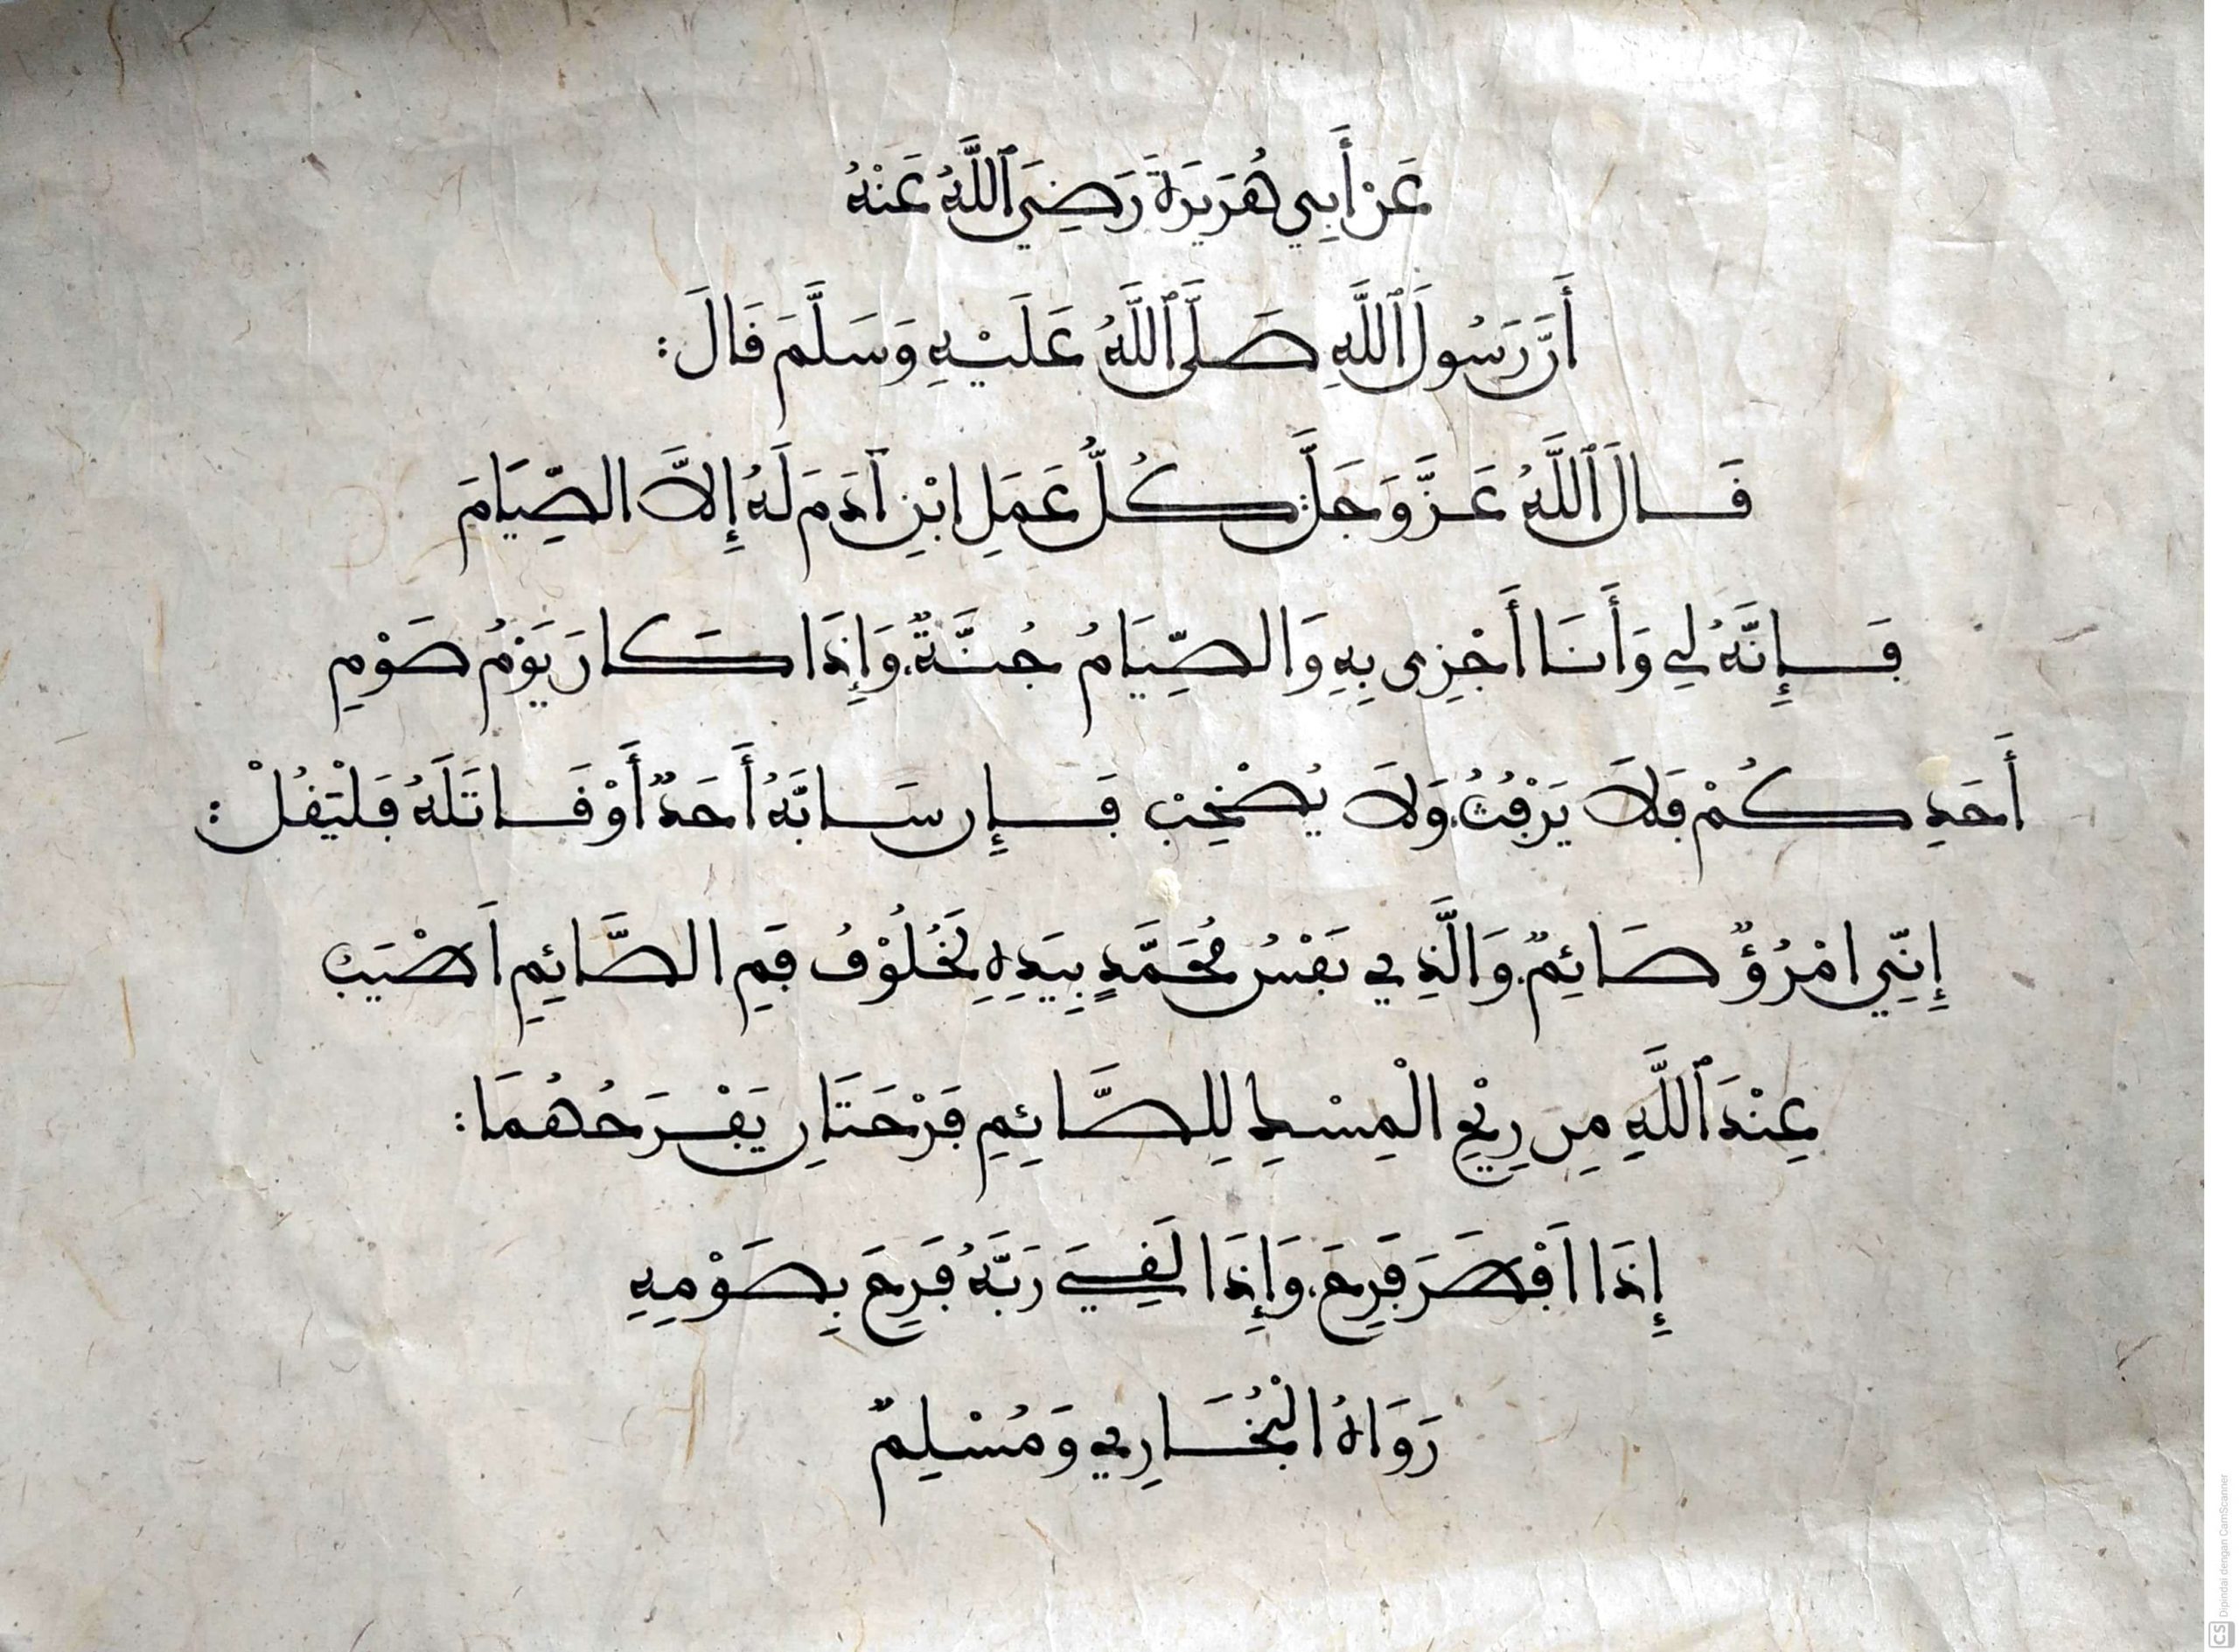 عَنْ أَبِي هُرَيرَةَ رَضِيَ ٱللَّهُ عَنْهُ
أَنَّ رَسُولَ ٱللَّهِ صَلَّى ٱللَّهُ عَلَيْهِ وَسَلَّمَ قَالَ:
قَالَ ٱللَّهُ عَزَّ وَجَلَّ: كُلُّ عَمَلِ ابْنِ آدَمَ لَهُ إِلاَّ الصِّيَامَ
فَإِنَّهُ لِي وَأَنَا أَجْزِى بِهِ وَالصِّيَامُ جُنَّةٌ. وَإِذَا كَانَ يَوْمُ صَوْمِ
أَحَدِكُمْ فَلاَ يَرْفُثْ. وَلاَ يُصْخِبْ فَإِن سَابَّهُ أَحَدٌ أَوْ قَاتَلَهُ فَلْيَقُلْ:
إِنِّي امْرُؤٌ صَائِمٌ. وَالَّذِي نَفْسُ مُحَمَّدٍ بِيَدِهِ لَخُلُوْفُ فَمِ الصَّائِمِ اَطْيَبُ
عِنْدَ ٱللَّهِ مِن رِيْحِ الْمِسْكِ لِلصَّائِمِ فَرْحَتَانِ يَفْرَحُهُمَا:
إِذَا اَفْطَرَ فَرِحَ. وَإِذَا لَقِيَ رَبَّهُ فَرِحَ بِصَوْمِهِ
رَوَاهُ الْبُخَارِي وَمُسْلِمٌ
CS Dipindai dengan CamScanner